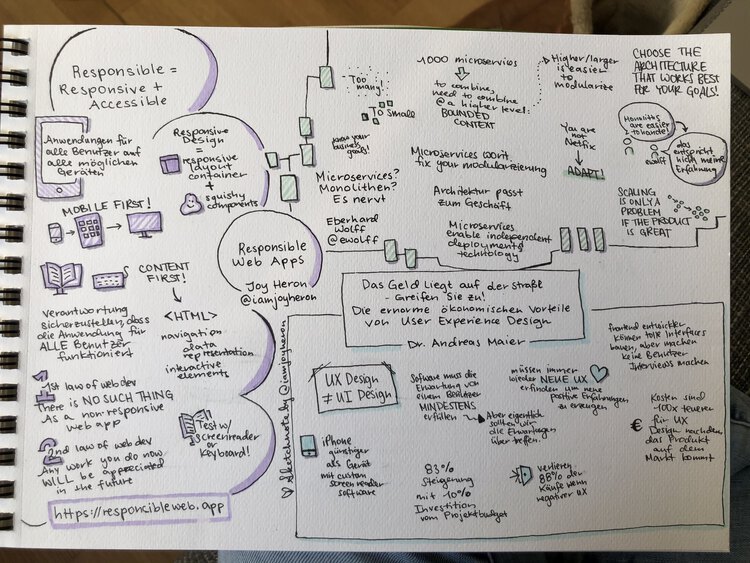 Responsible =
Responsive +
Accessible
Anwendungen für
alle Benutzer auf
alle möglichen
Geräten
Responsive
Design =
responsive
layout
container
+
squishy
components
MOBILE FIRST!
CONTENT
FIRST!
Verantwortung
sicherzustellen, dass
die Anwendung für
ALLE Benutzer
funktioniert
<HTML>
navigation
data
representation
interactive
elements
Responsible
Web Apps
Joy Heron
@iamjoyheron
1st law of web dev
There is NO SUCH THING
As a non responsive
web app
2nd law of web dev
Any work you do now
WILL be appreciated
in the future
Test w/
screenreader
or
Keyboard!
https://responsibleweb.app
♡ Sketchnote by @iamjoyheron
Too
many!
To Small
know your
business
goals!
Microservices?
Monolithen?
Es nervt
Eberhard
Wolff
@ewolff
1000 microservices
to combine,
need to combine
@ a higher level:
BOUNDED
CONTEXT
Higher/larger
is easier
to
modularize
Microservices won't
fix your modularizierung
Architektur passt
zum Geschäft
Microservices
enable independent
deployments
technology
You are
not
Netflix
ADAPT!
CHOOSE THE
ARCHITECTURE
THAT WORKS BEST
FOR YOUR GOALS!
Monoliths
are easier
to handle!
das
entspricht
nicht meine
Erfahrung
ewolff
SCALING
IS ONLY A
PROBLEM
IF THE PRODUCT
IS GREAT
Das Geld liegt auf der straße
- Greifen Sie zu!
Die enorme ökonomischen Vorteile
von User Experience Design
Dr. Andreas Maier
UX Design
≠ UI Design
Software muss die
Erwartung von
einem Benutzer
MINDESTENS
erfüllen
Aber eigentlich
sollten wir
die Erwartungen
über treffen.
müssen immer
wieder NEUE UX
erfinden um neue
positive Erfahrungen
zu erzeugen
frontend entwickler
können tolle Interfaces
bauen, aber machen
keine Benutzer
Interviews machen
iPhone
günstiger
als Gerät
mit custom
screen reader
software
83%
Steigerung
mit 10%
Investition
vom Projektbudget
verlieren
88% der
Käufe wenn
negativer UX
€
Kosten sind
100x teurer
für UX
Design nachdem
das Produkt
auf dem
Markt kommt